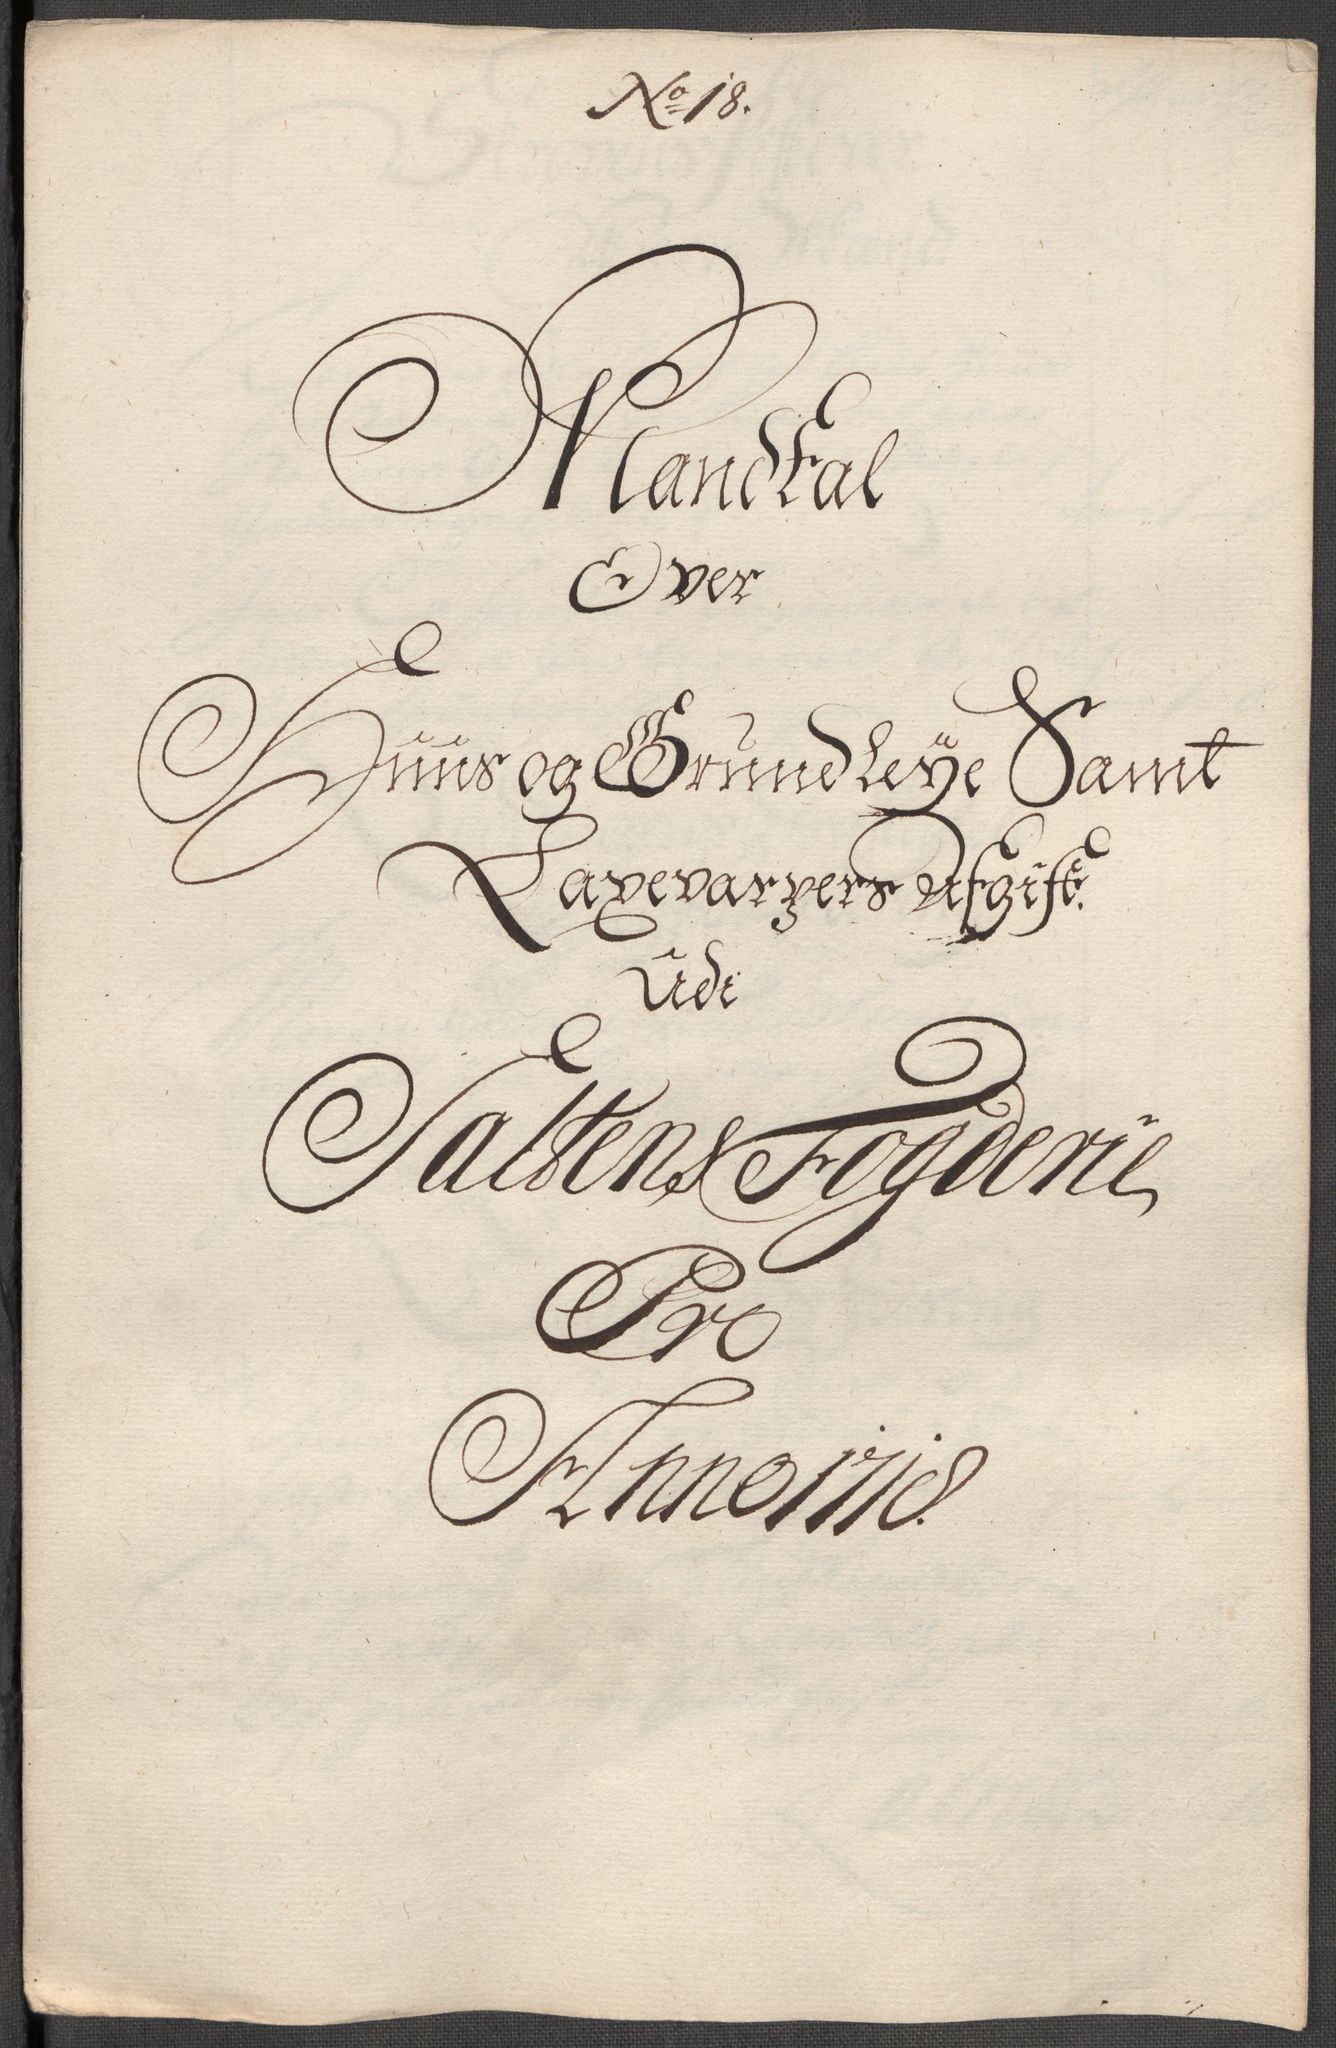 No 18.
Mandtal
Over
Huus og Grundleÿe Samt
Laxevarpers Afgift.
Udi
Saltens Fogderie
Pro
Anno 1718.